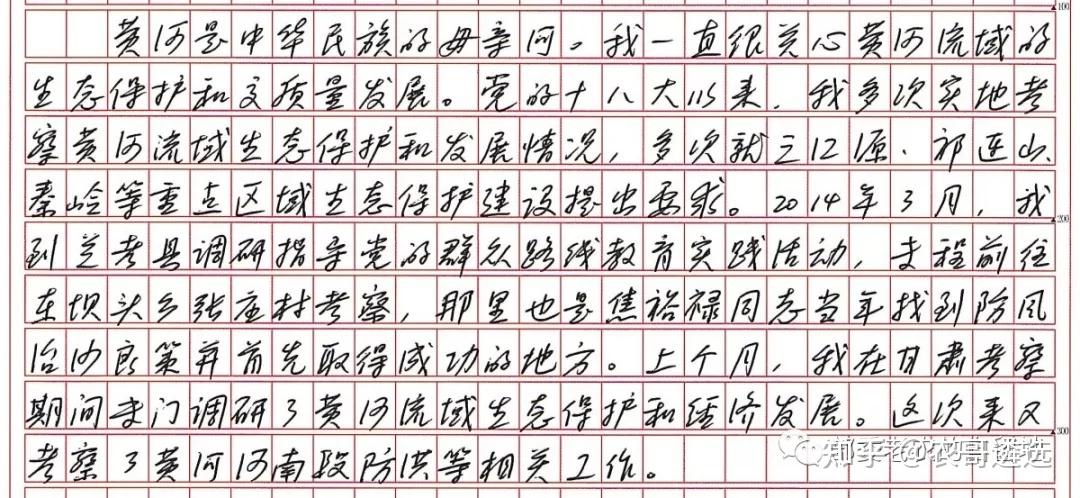 黄河是中华民族的母亲河。我一直很关心黄河流域的
生态保护和高质量发展。党的十八大以来，我多次实地考
察黄河流域生态保护和发展情况，多次就三江源、祁连山、
秦岭等重点区域生态保护建设提出要求。2014年3月，我
到兰考县调研指导党的群众路线教育实践活动，专程前往
东坝头乡张庄村考察，那里也是焦裕禄同志当年找到防风
治沙良策并首先取得成功的地方。上个月，我在甘肃考察
期间专门调研了黄河流域生态保护和经济发展。这次来又
考察了黄河河南段防洪等相关工作。
100
200
300
知乎 @农哥遴选